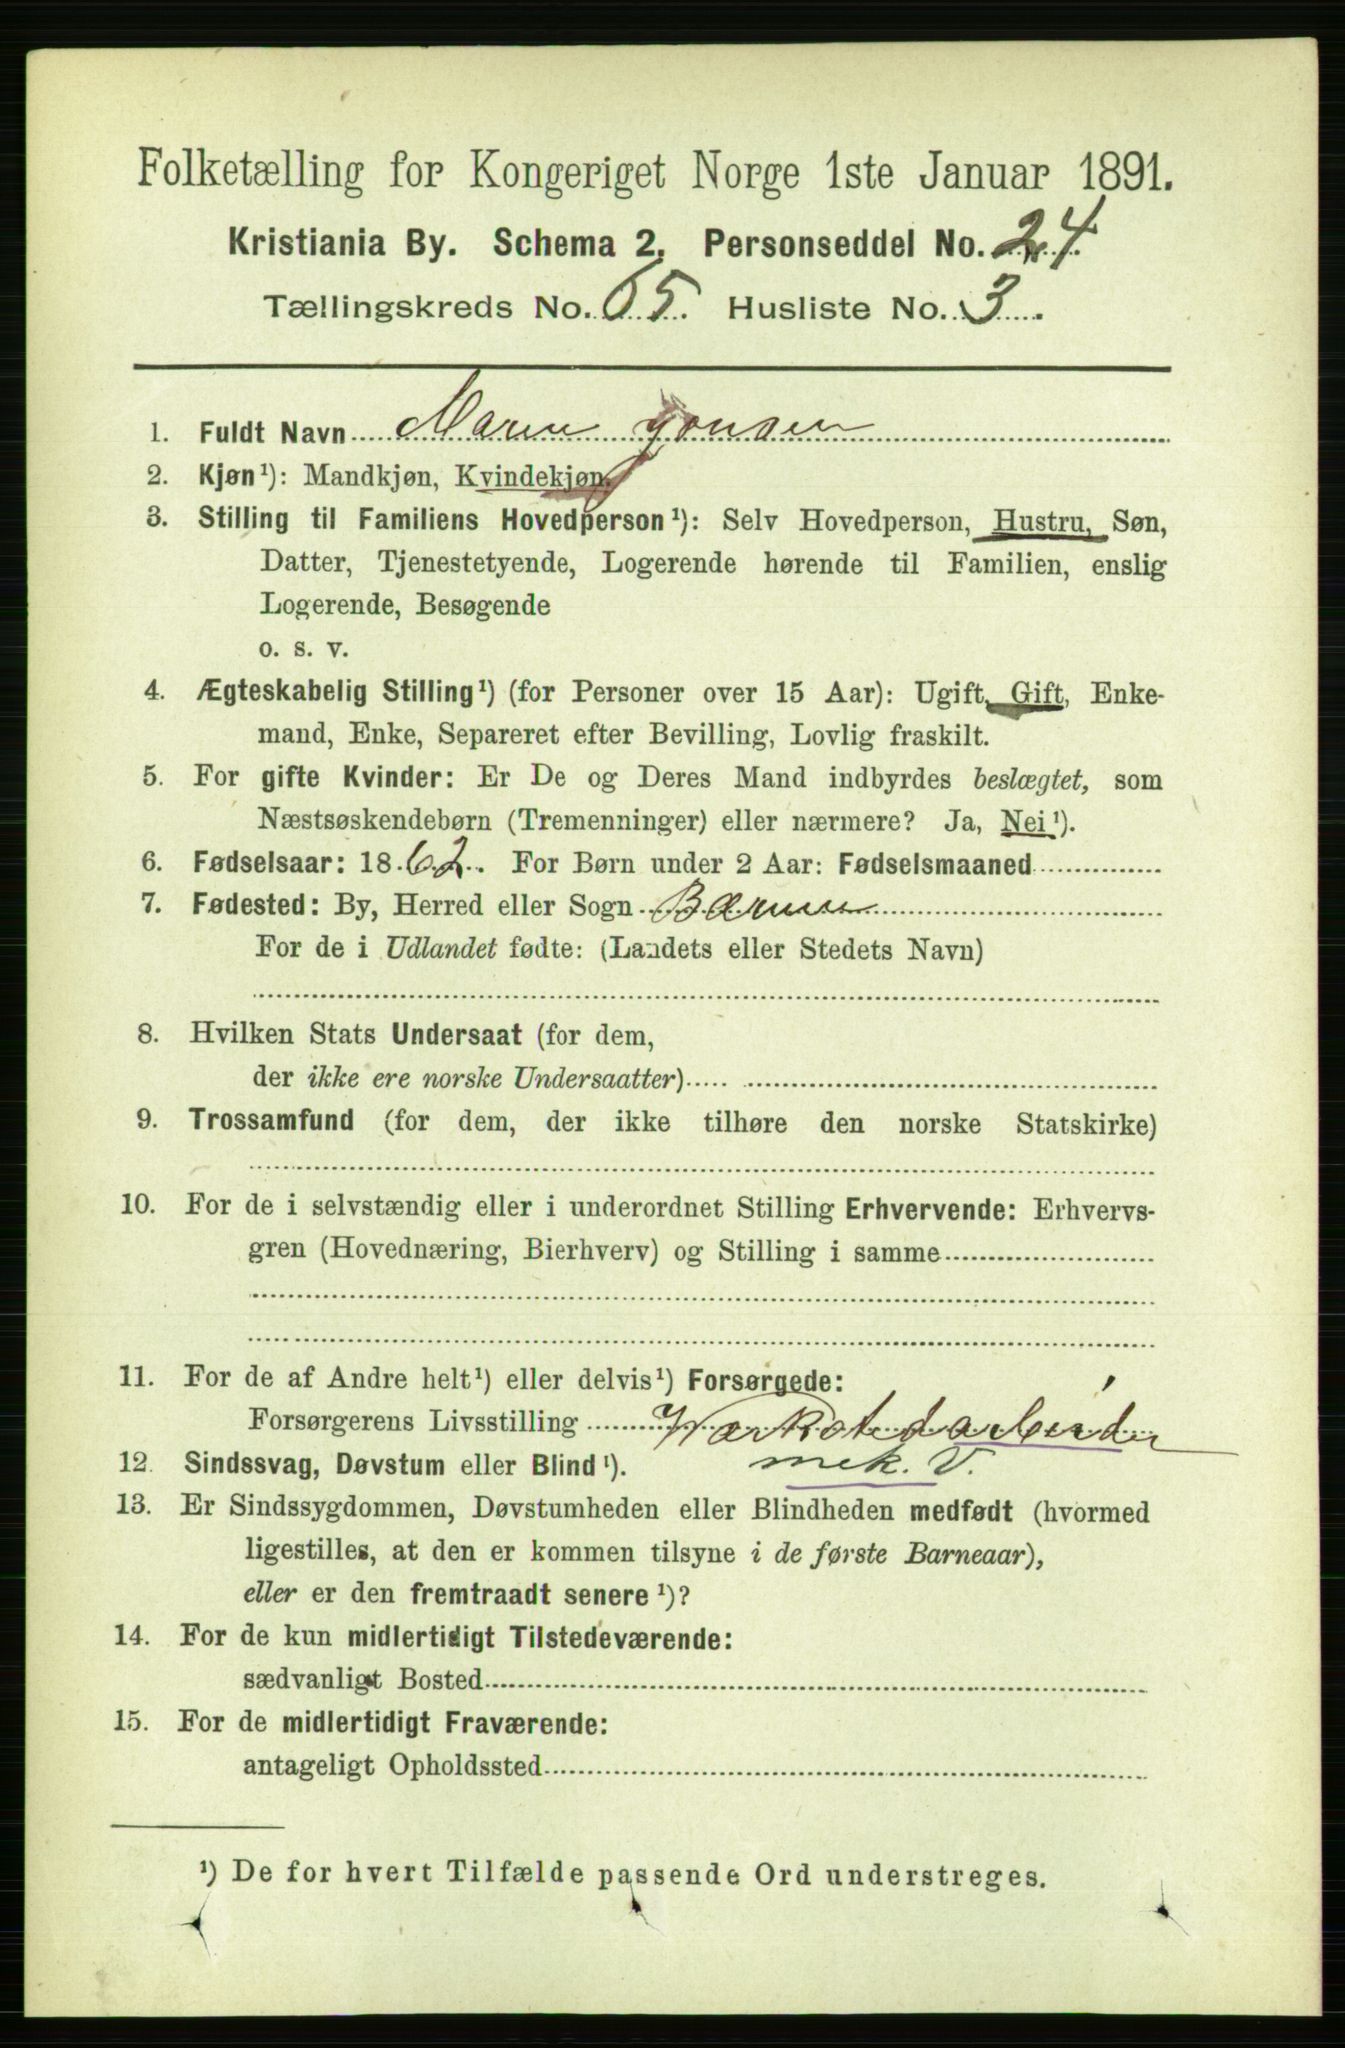 Folketælling for Kongeriget Norge 1ste Januar 1891.
Kristiania By. Schema 2. Personseddel No. 24.
Tællingskreds No. 65. Husliste No. 3.
1. Fuldt Navn Maren Jonsen
2. Kjøn¹): Mandkjøn, Kvindekjøn.
3. Stilling til Familiens Hovedperson¹): Selv Hovedperson, Hustru, Søn,
Datter, Tjenestetyende, Logerende hørende til Familien, enslig
Logerende, Besøgende
o. s. v.
4. Ægteskabelig Stilling¹) (for Personer over 15 Aar): Ugift, Gift, Enke-
mand, Enke, Separeret efter Bevilling, Lovlig fraskilt.
5. For gifte Kvinder: Er De og Deres Mand indbyrdes beslægtet, som
Næstsøskendebørn (Tremenninger) eller nærmere? Ja, Nei¹).
6. Fødselsaar: 1862. For Børn under 2 Aar: Fødselsmaaned
7. Fødested: By, Herred eller Sogn Bærum
For de i Udlandet fødte: (Landets eller Stedets Navn)
8. Hvilken Stats Undersaat (for dem,
der ikke ere norske Undersaatter)
9. Trossamfund (for dem, der ikke tilhøre den norske Statskirke)
10. For de i selvstændig eller i underordnet Stilling Erhvervende: Erhvervs-
gren (Hovednæring, Bierhverv) og Stilling i samme
11. For de af Andre helt¹) eller delvis¹) Forsørgede:
Forsørgerens Livsstilling Værkstedarbeider
mek. V.
12. Sindssvag, Døvstum eller Blind¹).
13. Er Sindssygdommen, Døvstumheden eller Blindheden medfødt (hvormed
ligestilles, at den er kommen tilsyne i de første Barneaar),
eller er den fremtraadt senere¹)?
14. For de kun midlertidigt Tilstedeværende:
sædvanligt Bosted
15. For de midlertidigt Fraværende:
antageligt Opholdssted
¹) De for hvert Tilfælde passende Ord understreges.